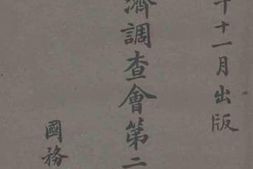 十一月出版
濟調查會第二
國務